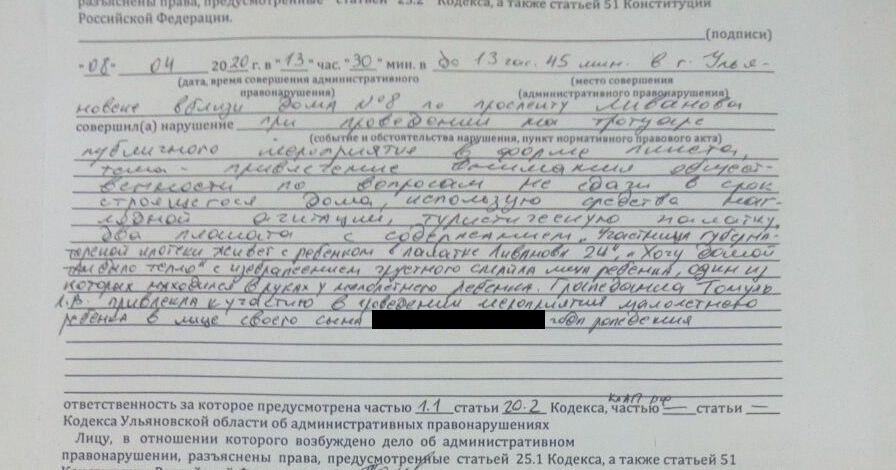 разъяснены права, предусмотренные статьей 25.2 Кодекса, а также статьей 51 Конституции
Российской Федерации.
(подписи)
"08" 04 2020 г. в "13" час. "30" мин. в до 13 час. 45 мин. в г. Улья-
(дата, время совершения административного правонарушения)
(место совершения (административного правонарушения)
новске вблизи дома №8 по проспекту Ливанова
совершил(а) нарушение при проведении на тротуаре
(событие и обстоятельства нарушения, пункт нормативного правового акта)
публичного мероприятие в форме пикета,
тема - привлечение внимания общест-
венности по вопросам не сдачи в срок
строящегося дома, использую средства наг-
лядной агитации, туристическую палатку,
два плаката с содержанием „Участница губерна-
торской ипотеки живет с ребенком в палатке Ливанова 24", „Хочу домой
там было тепло" с изображением грустного смайла лица ребенка, один из
которых находился в руках у малолетнего ребенка. Гражданка
Л.В. привлекла к участию в проведении мероприятия малолетнего
ребенка в лице своего сына года рождения
ответственность за которое предусмотрена частью 1.1 статьи 20.2 Кодекса, КоАП РФ частью — статьи —
Кодекса Ульяновской области об административных правонарушениях
Лицу, в отношении которого возбуждено дело об административном
правонарушении, разъяснены права, предусмотренные статьей 25.1 Кодекса, а также статьей 51